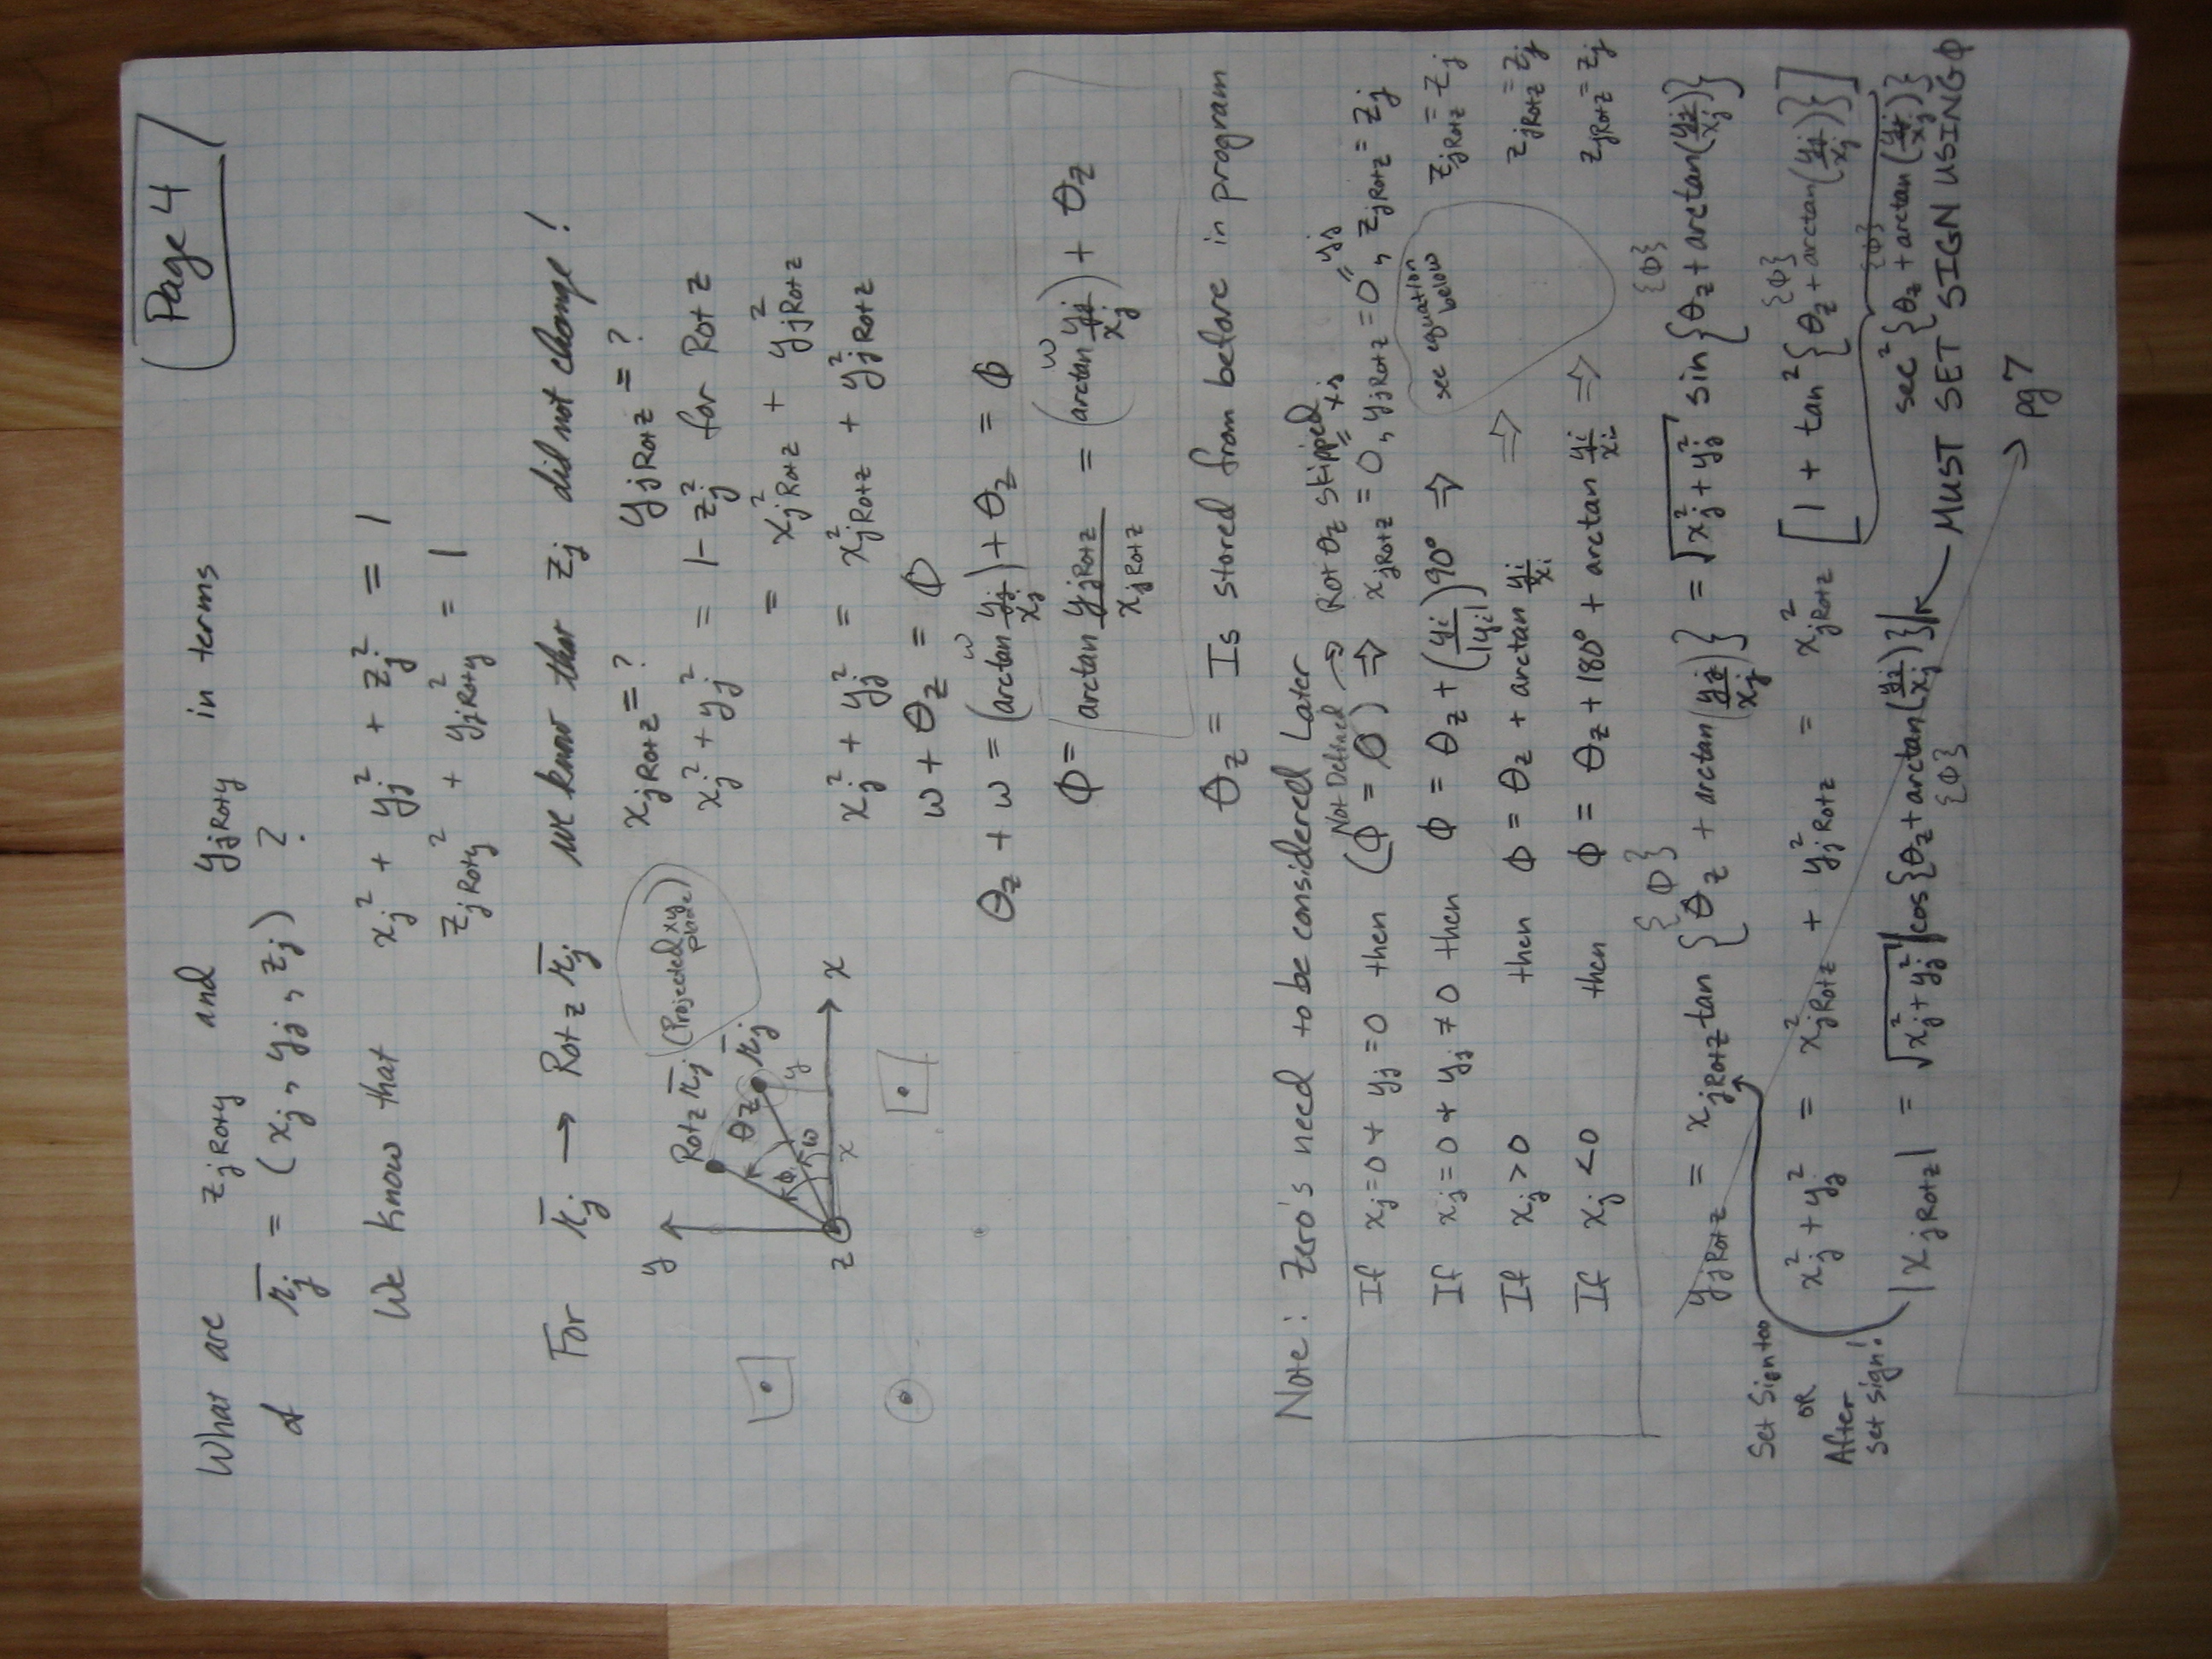 Page 4
What are z_jRoty and y_jRoty in terms
of r̄_j = (x_j, y_j, z_j) ?
We know that x_j² + y_j² + z_j² = 1
z_jRoty² + y_jRoty² = 1
For r̄_j → Rotz r̄_j we know that z_j did not change!
x_jRotz = ? y_jRotz = ?
y
Rotz r̄_j (Projected xy plane)
θz
r̄_j
y
ϕ
ω
x
z
x
x_j² + y_j² = 1 - z_j² for Rot z
= x_jRotz² + y_jRotz²
x_j² + y_j² = x_jRotz² + y_jRotz²
ω + θz = ϕ
θz + ω = (arctan y_j/x_j) + θz = ϕ
ω
ϕ = arctan y_jRotz/x_jRotz = (arctan y_j/x_j) + θz
ω
θz = Is stored from before in program
Note: Zero's need to be considered Later
Not Defined → Rot θz skipped
If x_j = 0 + y_j = 0 then (ϕ = 0) ⇒ x_jRotz = 0, y_jRotz = 0, z_jRotz = z_j
= x_j = y_j
If x_j = 0 + y_j ≠ 0 then ϕ = θz + (y_j/|y_j|) 90° ⇒ see equation below z_jRotz = z_j
If x_j > 0 then ϕ = θz + arctan y_j/x_j ⇒ z_jRotz = z_j
If x_j < 0 then ϕ = θz + 180° + arctan y_j/x_j ⇒ z_jRotz = z_j
{ϕ} {ϕ}
y_jRotz = x_jRotz tan{θz + arctan(y_j/x_j)} = √(x_j² + y_j²) sin{θz + arctan(y_j/x_j)}
Set Sign too
OR
After
set sign!
{ϕ}
x_j² + y_j² = x_jRotz² + y_jRotz² = x_jRotz² [1 + tan²{θz + arctan(y_j/x_j)}]
{ϕ}
sec²{θz + arctan(y_j/x_j)}
|x_jRotz| = √(x_j² + y_j²) |cos{θz + arctan(y_j/x_j)}|
{ϕ}
MUST SET SIGN USING ϕ
→ pg 7